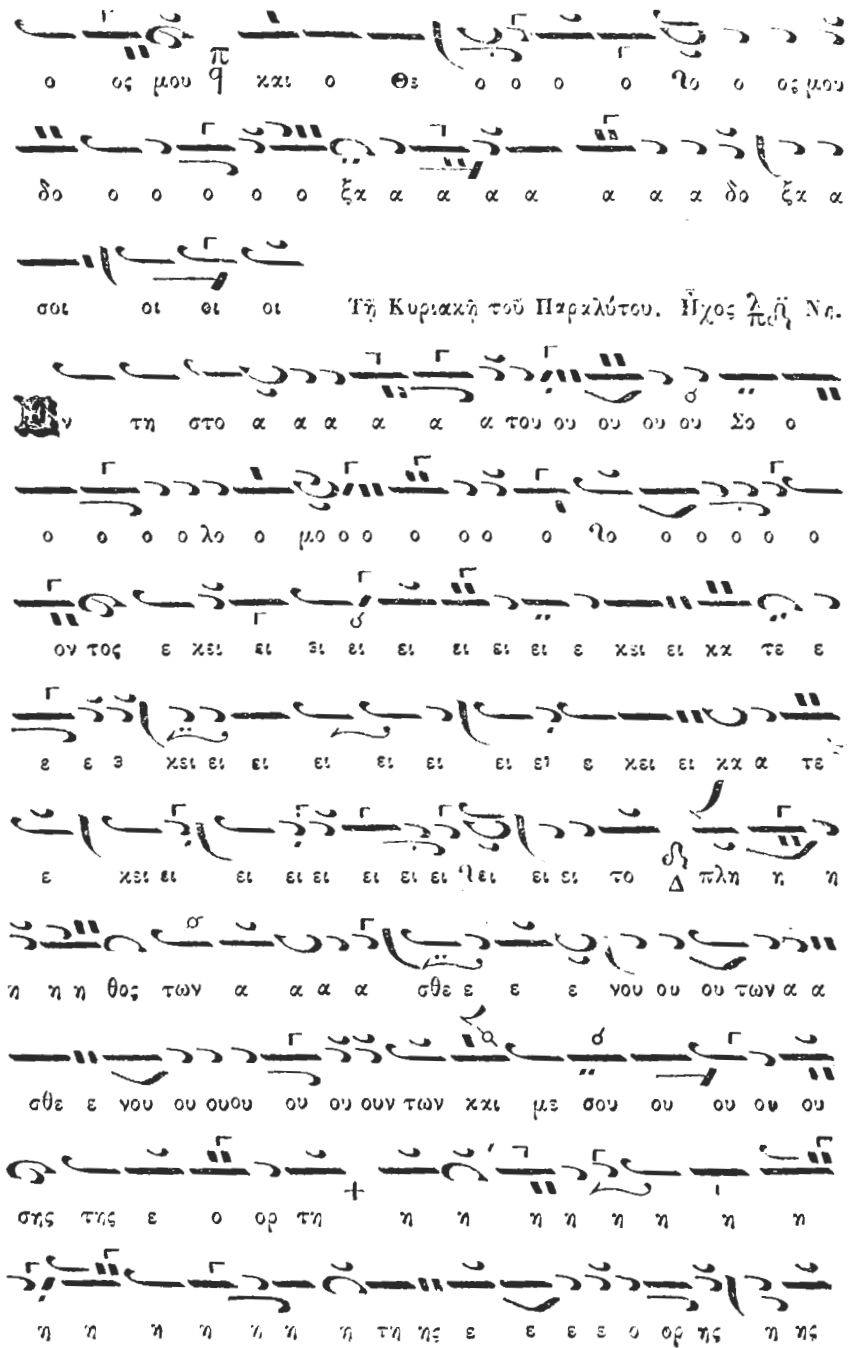 ο ος μου π q και ο Θε ο ο ο ο λο ο ος μου
δο ο ο ο ο ο ξα α α α α α α α δο ξα α
σοι οι οι οι Τῇ Κυριακῇ τοῦ Παραλύτου. Ἦχος λ π Νη.
Εν τη στο α α α α α α του ου ου ου ου Σο ο
ο ο ο ο λο ο μο ο ο ο ο ο ο λο ο ο ο ο ο
ον τος ε κει ει ει ει ει ει ει ει ε κει ει κα τε ε
ε ε ε κει ει ει ει ει ει ει ει ε κει ει κα α τε
ε κει ει ει ει ει ει ει ει λει ει ει το Δ πλη η η
η η η θος των α α α α σθε ε ε ε νου ου ου των α α
σθε ε νου ου ου ου ου ου ουν των και με σου ου ου ου ου
σης της ε ο ορ τη η η η η η η η η
η η η η η η η τη ης ε ε ε ε ο ορ ης η ης